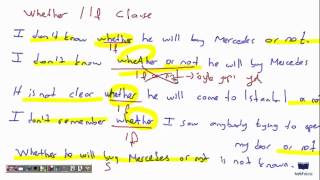 Whether / If Clause
I don't know whether he will buy Mercedes or not.
If
I don't know whether or not he will buy Mercedes
If
It is not clear whether he will come to Istanbul or not
If
I don't remember whether I saw anybody trying to open
If
my door or not.
Whether to will buy Mercedes or not is not known.
S